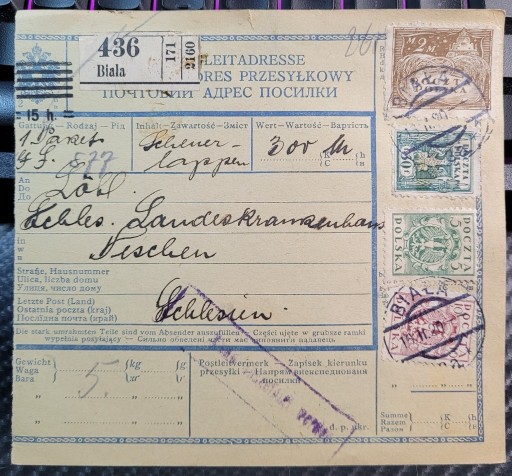 436
Biała
171
2160
LEITADRESSE
ADRES PRZESYŁKOWY
ПОЧТОВИЙ АДРЕС ПОСИЛКИ
15 h.
Gattung - Rodzaj - Рід
Inhalt - Zawartość - Зміст
Wert - Wartość - Вартість
1 Paket
Scheuer-
lappen
300 M
K
h
577
An
Do
До
Löbl.
Schles. Landeskrankenhaus
in
w
в
Teschen
Straße, Hausnummer
Ulica, liczba domu
Улиця, число дому
Letzte Post (Land)
Ostatnia poczta (kraj)
Послідна почта (край)
Schlesien
Die stark umrahmten Teile sind vom Absender auszufüllen - Części ujęte w grubsze ramki
wypełnia posyłający - Сильно обведені части має виповнити надавець
Gewicht
Waga
Вага
5.
kg
кг
g
gr
ґр
Postleitvermerk - Zapisek kierunku
przesyłki - Напрям
посилки
d. p. skr.
Summe
Razem
Разом
K
h
M 2 M
POCZTA
POLSKA
POCZTA
POLSKA
5
5
BIAŁA
20